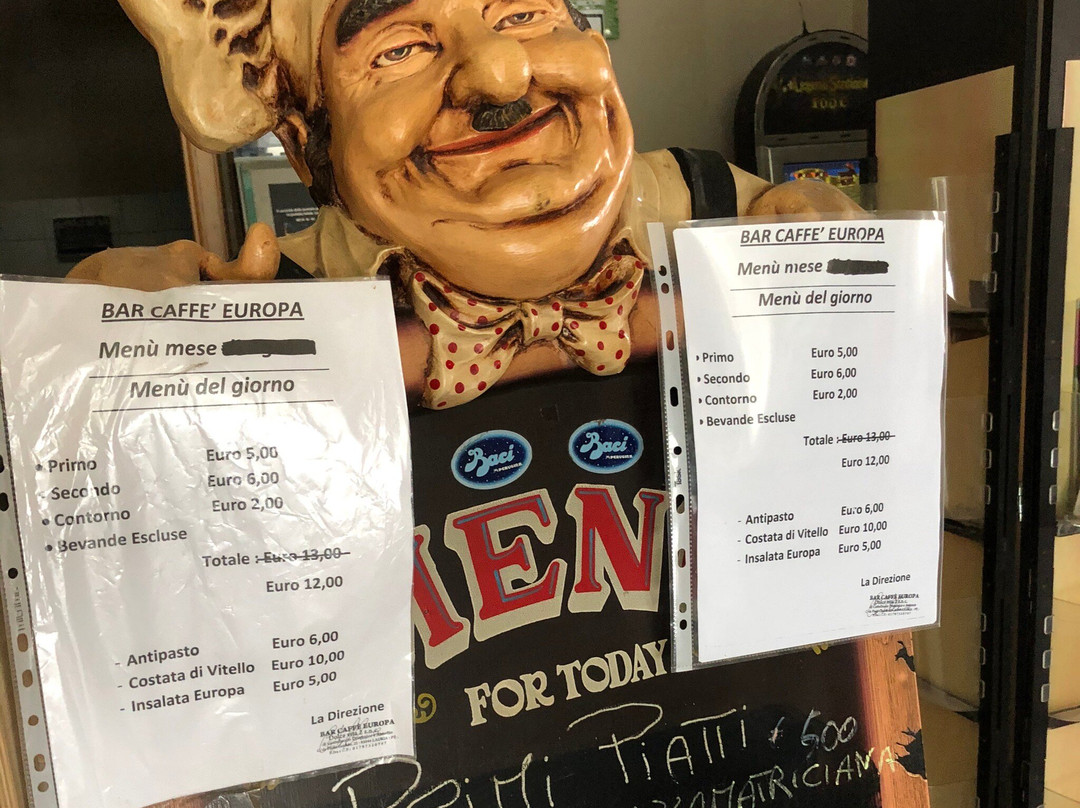 BAR CAFFE' EUROPA
Menù mese
Menù del giorno
• Primo Euro 5,00
- Secondo Euro 6,00
• Contorno Euro 2,00
• Bevande Escluse
Totale : Euro 13,00
Euro 12,00
- Antipasto Euro 6,00
- Costata di Vitello Euro 10,00
- Insalata Europa Euro 5,00
La Direzione
BAR CAFFÈ EUROPA
BAR CAFFE' EUROPA
Menù mese
Menù del giorno
• Primo Euro 5,00
• Secondo Euro 6,00
• Contorno Euro 2,00
• Bevande Escluse
Totale : Euro 13,00
Euro 12,00
- Antipasto Euro 6,00
- Costata di Vitello Euro 10,00
- Insalata Europa Euro 5,00
La Direzione
BAR CAFFÈ EUROPA
Baci
PERUGINA
Baci
PERUGINA
MEN
FOR TODAY
PRIMI PIATTI € 500
AMATRICIANA